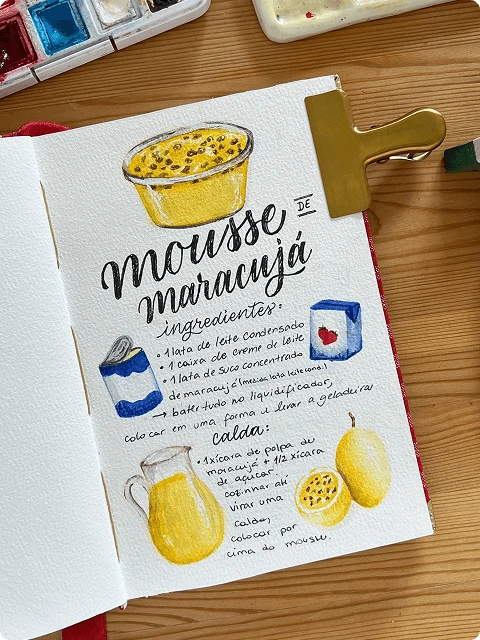 mousse DE
maracujá
ingredientes:
• 1 lata de leite condensado
• 1 caixa de creme de leite
• 1 lata de suco concentrado
de maracujá (medida lata leite cond.)
→ bater tudo no liquidificador,
colocar em uma forma e levar a geladeira
calda:
• 1 xícara de polpa de
maracujá + 1/2 xícara
de açúcar.
cozinhar até
virar uma
calda,
colocar por
cima do mousse.